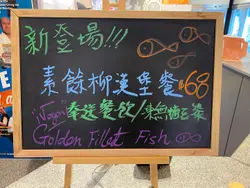 新登場!!!
素餘柳漢堡餐 $68
(Vegan) 奉送餐飲/凍無糖豆漿
Golden Fillet Fish